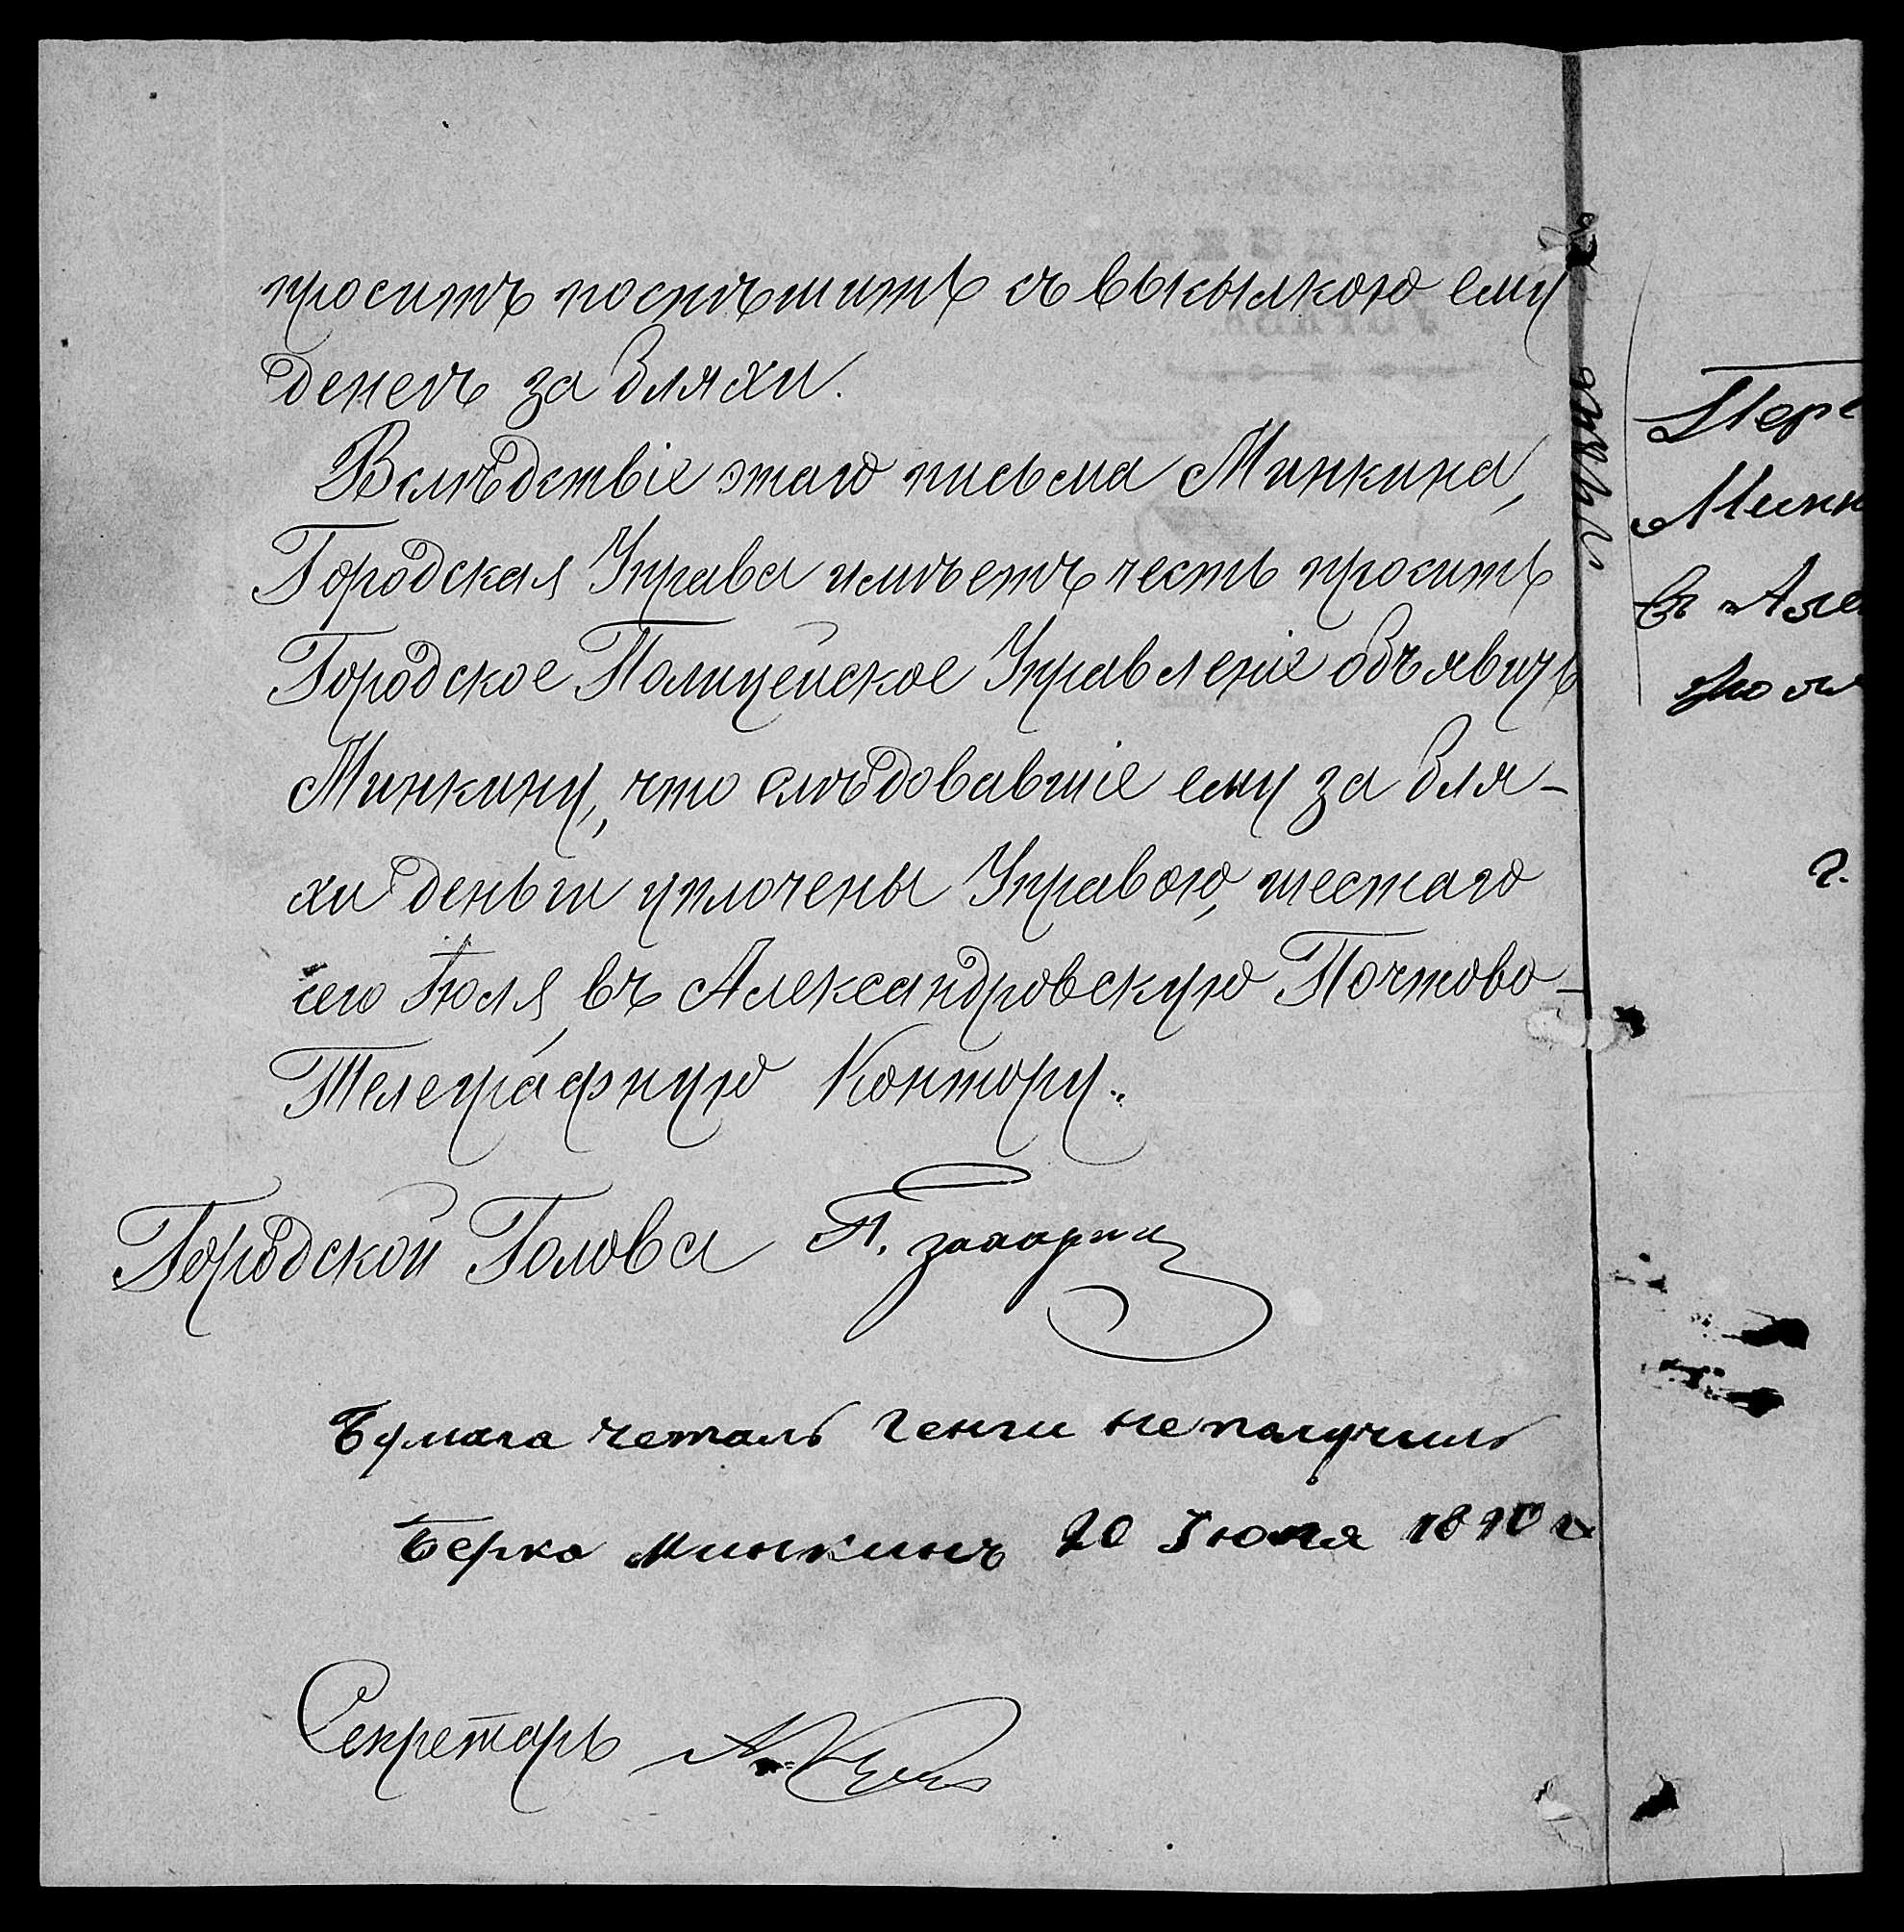 проситъ поспѣшить съ высылкою ему
денегъ за бляхи.
Вслѣдствіе этаго письма Минкина,
Городская Управа имѣетъ честь просить
Городское Полицейское Управленіе объявить
Минкину, что слѣдовавшіе ему за бля-
хи деньги уплочены Управою, шестаго
сего Іюля, въ Александровскую Почтово-
Телеграфную Контору.
Городской Голова П.
Бумага четалъ генги неполучилъ
Берко Минкинъ 20 Іюля 1890 г
Секретарь
Пер
Минк
въ Але
г.